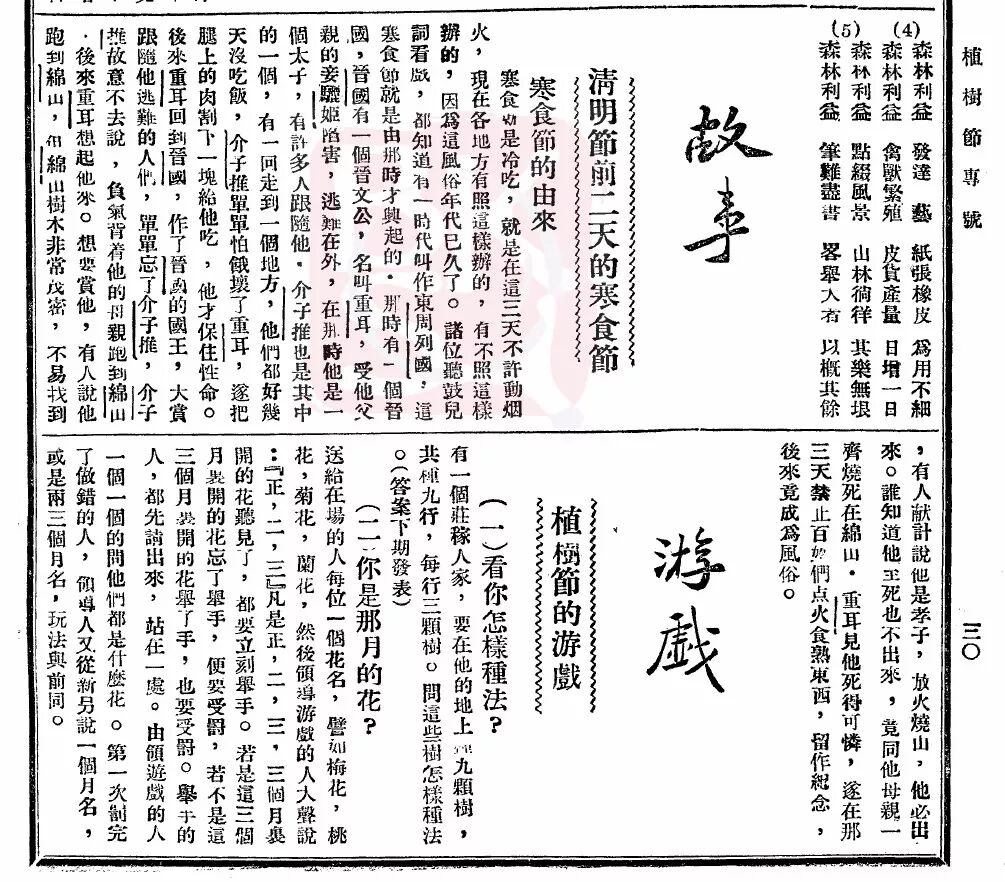 植樹節專號
三〇
(4) 森林利益 發達 藝 紙張橡皮 為用不細
森林利益 禽獸繁殖 皮貨產量 日增一日
(5) 森林利益 點綴風景 山林徜徉 其樂無垠
森林利益 筆難盡書 畧舉大有 以概其餘
故事
清明節前二天的寒食節
寒食節的由來
寒食 是冷吃,就是在這三天不許動烟
火,現在各地方有照這樣辦的,有不照這樣
辦的,因為這風俗年代已久了。諸位聽鼓兒
詞看戲,都知道有一時代叫作東周列國,這
寒食節就是由那時才興起的.那時有一個晉
國,晉國有一個晉文公,名叫重耳,受他父
親的妾驪姬陷害,逃難在外,在那時他是一
個太子,有許多人跟隨他.介子推也是其中
的一個,有一回走到一個地方,他們都好幾
天沒吃飯,介子推單單怕餓壞了重耳,遂把
腿上的肉割下一塊給他吃,他才保住性命。
後來重耳回到晉國,作了晉國的國王,大賞
跟隨他逃難的人們,單單忘了介子推,介子
推故意不去說,負氣背着他的母親跑到綿山
.後來重耳想起他來。想要賞他,有人說他
跑到綿山,但綿山樹木非常茂密,不易找到
,有人献計說他是孝子,放火燒山,他必出
來。誰知道他至死也不出來,竟同他母親一
齊燒死在綿山.重耳見他死得可憐,遂在那
三天禁止百姓們点火食熟東西,留作紀念,
後來竟成為風俗。
游戲
植樹節的游戲
(一)看你怎樣種法?
有一個莊稼人家,要在他的地上種九顆樹,
共種九行,每行三顆樹。問這些樹怎樣種法
。(答案下期發表)
(二)你是那月的花?
送給在場的人每位一個花名,譬如梅花,桃
花,菊花,蘭花,然後領導游戲的人大聲說
:『正,二,三』凡是正,二,三,三個月裏
開的花聽見了,都要立刻舉手。若是這三個
月裏開的花忘了舉手,便要受罸,若不是這
三個月裏開的花舉了手,也要受罸。舉手的
人,都先請出來,站在一處。由領遊戲的人
一個一個的問他們都是什麼花。第一次罰完
了做錯的人,領導人又從新另說一個月名,
或是兩三個月名,玩法與前同。